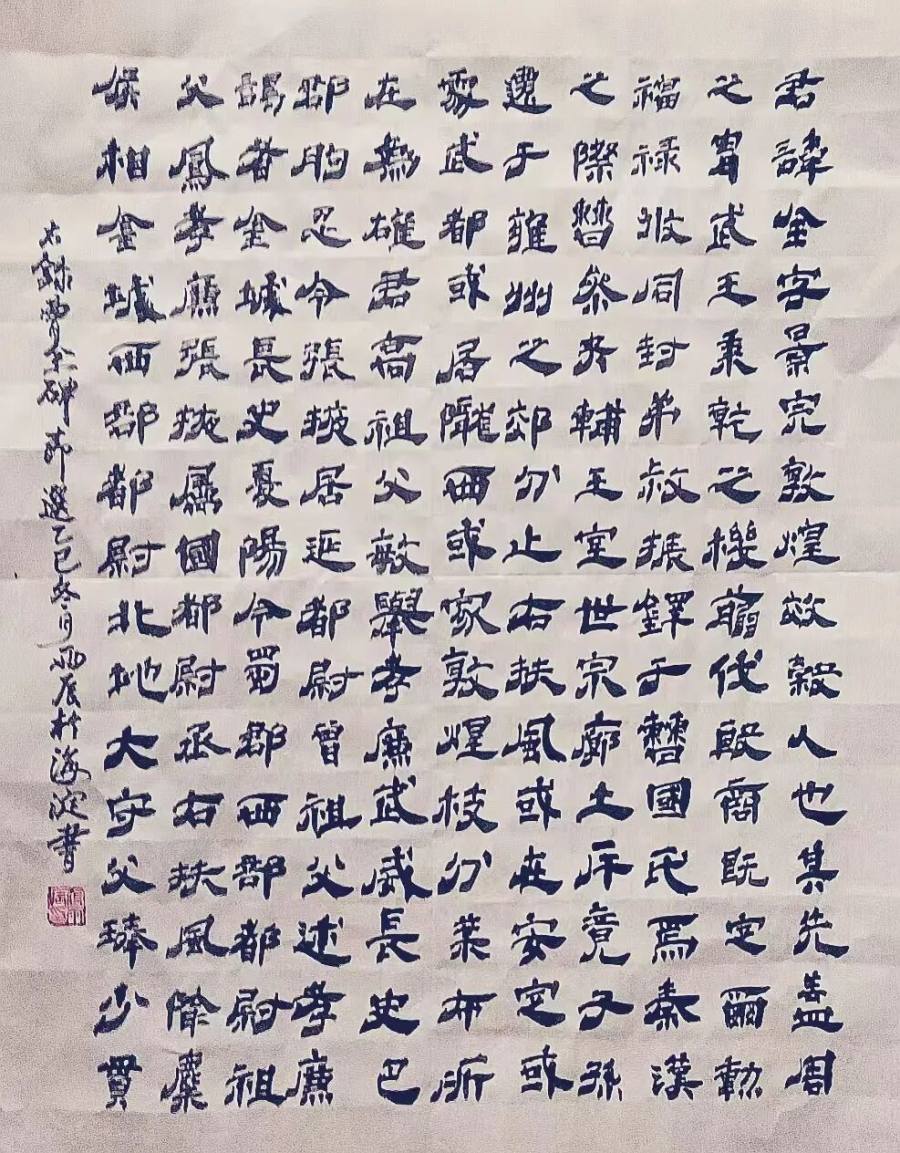 君諱全字景完敦煌效穀人也其先蓋周
之胄武王秉乾之機翦伐殷商既定爾勳
福禄攸同封弟叔振鐸于曹國氏焉秦漢
之際曹參夾輔王室世宗廓土斥竟子孫
遷于雍州之郊分止右扶風或在安定或
處武都或居隴西或家敦煌枝分葉布所
在為雄君高祖父敏舉孝廉武威長史巴
郡朐忍令張掖居延都尉曾祖父述孝廉
謁者金城長史夏陽令蜀郡西部都尉祖
父鳳孝廉張掖屬國都尉丞右扶風隃麋
侯相金城西部都尉北地大守父琫少貫
右錄曹全碑節選乙巳冬月雨辰於海淀書